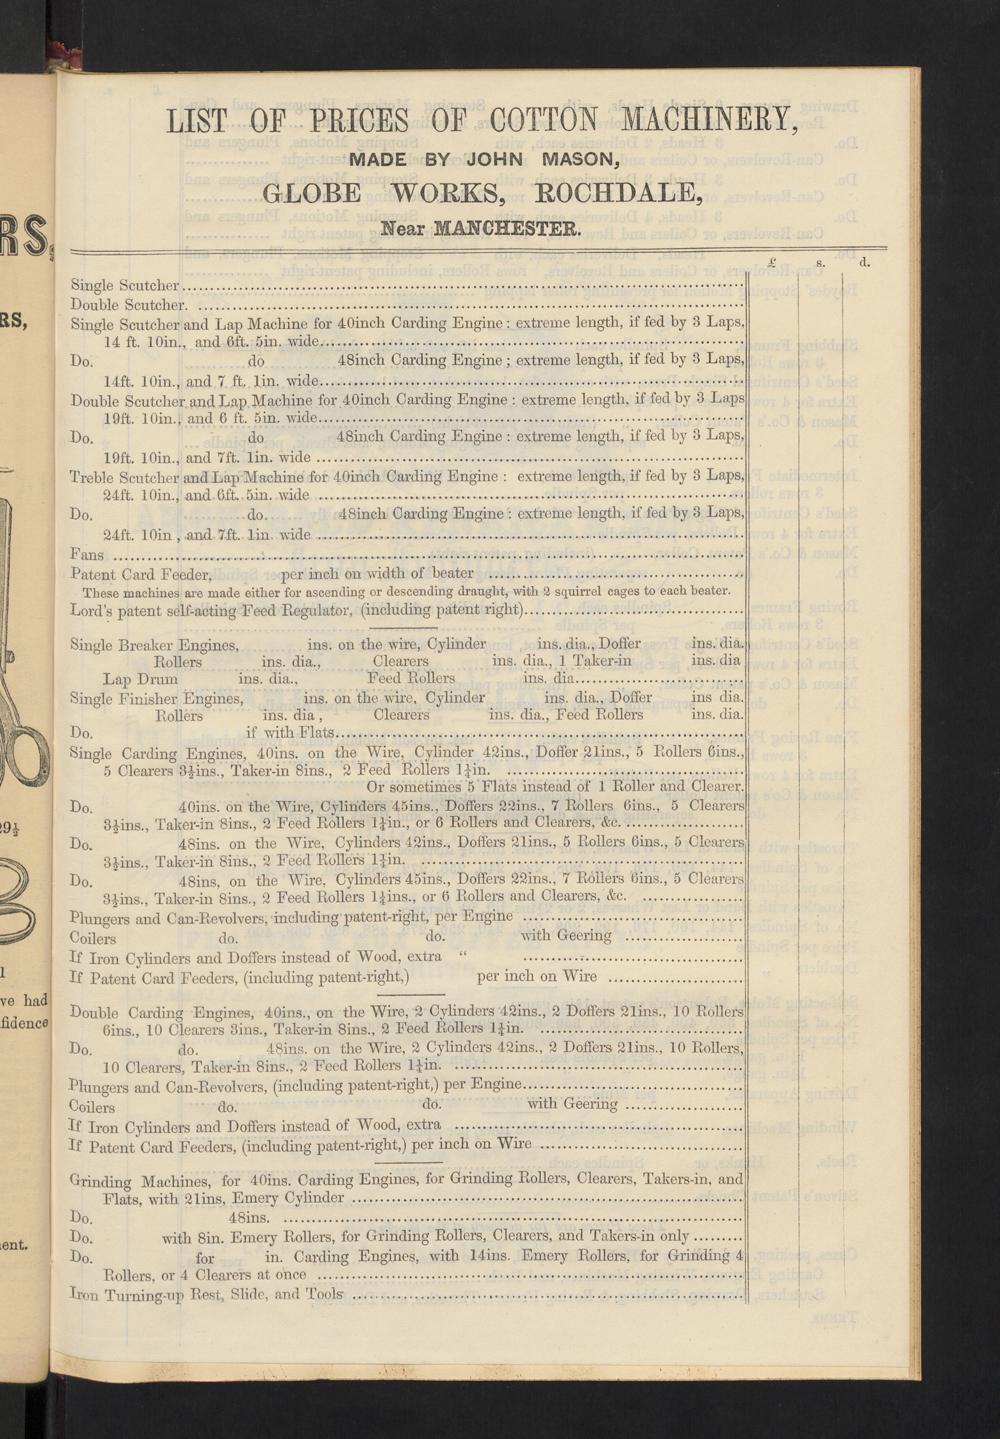 LIST OF PRICES OF COTTON MACHINERY,
MADE BY JOHN MASON,
GLOBE WORKS, ROCHDALE,
Near MANCHESTER.
£ s. d.
Single Scutcher
Double Scutcher.
Single Scutcher and Lap Machine for 40inch Carding Engine: extreme length, if fed by 3 Laps,
14 ft. 10in., and 6ft. 5in. wide
Do. do 48inch Carding Engine; extreme length, if fed by 3 Laps,
14ft. 10in., and 7 ft. 1in. wide
Double Scutcher and Lap Machine for 40inch Carding Engine: extreme length, if fed by 3 Laps
19ft. 10in., and 6 ft. 5in. wide
Do. do 48inch Carding Engine: extreme length, if fed by 3 Laps,
19ft. 10in., and 7ft. 1in. wide
Treble Scutcher and Lap Machine for 40inch Carding Engine: extreme length, if fed by 3 Laps,
24ft. 10in., and 6ft. 5in. wide
Do. do. 48inch Carding Engine: extreme length, if fed by 3 Laps,
24ft. 10in, and 7ft. 1in. wide
Fans
Patent Card Feeder, per inch on width of beater
These machines are made either for ascending or descending draught, with 2 squirrel cages to each beater.
Lord's patent self-acting Feed Regulator, (including patent right)
Single Breaker Engines, ins. on the wire, Cylinder ins. dia., Doffer ins. dia.
Rollers ins. dia., Clearers ins. dia., 1 Taker-in ins. dia
Lap Drum ins. dia., Feed Rollers ins. dia.
Single Finisher Engines, ins. on the wire, Cylinder ins. dia., Doffer ins dia.
Rollers ins. dia, Clearers ins. dia., Feed Rollers ins. dia.
Do. if with Flats
Single Carding Engines, 40ins. on the Wire, Cylinder 42ins., Doffer 21ins., 5 Rollers 6ins.,
5 Clearers 3½ins., Taker-in 8ins., 2 Feed Rollers 1¼in.
Or sometimes 5 Flats instead of 1 Roller and Clearer.
Do. 40ins. on the Wire, Cylinders 45ins., Doffers 22ins., 7 Rollers 6ins., 5 Clearers
3½ins., Taker-in 8ins., 2 Feed Rollers 1¼in., or 6 Rollers and Clearers, &c.
Do. 48ins. on the Wire, Cylinders 42ins., Doffers 21ins., 5 Rollers 6ins., 5 Clearers
3½ins., Taker-in 8ins., 2 Feed Rollers 1¼in.
Do. 48ins, on the Wire, Cylinders 45ins., Doffers 22ins., 7 Rollers 6ins., 5 Clearers
3½ins., Taker-in 8ins., 2 Feed Rollers 1¼ins., or 6 Rollers and Clearers, &c.
Plungers and Can-Revolvers, including patent-right, per Engine
Coilers do. do. with Geering
If Iron Cylinders and Doffers instead of Wood, extra "
If Patent Card Feeders, (including patent-right,) per inch on Wire
Double Carding Engines, 40ins., on the Wire, 2 Cylinders 42ins., 2 Doffers 21ins., 10 Rollers
6ins., 10 Clearers 3ins., Taker-in 8ins., 2 Feed Rollers 1¼in.
Do. do. 48ins. on the Wire, 2 Cylinders 42ins., 2 Doffers 21ins., 10 Rollers,
10 Clearers, Taker-in 8ins., 2 Feed Rollers 1¼in.
Plungers and Can-Revolvers, (including patent-right,) per Engine
Coilers do. do. with Geering
If Iron Cylinders and Doffers instead of Wood, extra
If Patent Card Feeders, (including patent-right,) per inch on Wire
Grinding Machines, for 40ins. Carding Engines, for Grinding Rollers, Clearers, Takers-in, and
Flats, with 21ins, Emery Cylinder
Do. 48ins.
Do. with 8in. Emery Rollers, for Grinding Rollers, Clearers, and Takers-in only
Do. for in. Carding Engines, with 14ins. Emery Rollers, for Grinding 4
Rollers, or 4 Clearers at once
Iron Turning-up Rest, Slide, and Tools
RS,
RS,
29½
1
ve had
fidence
ent.